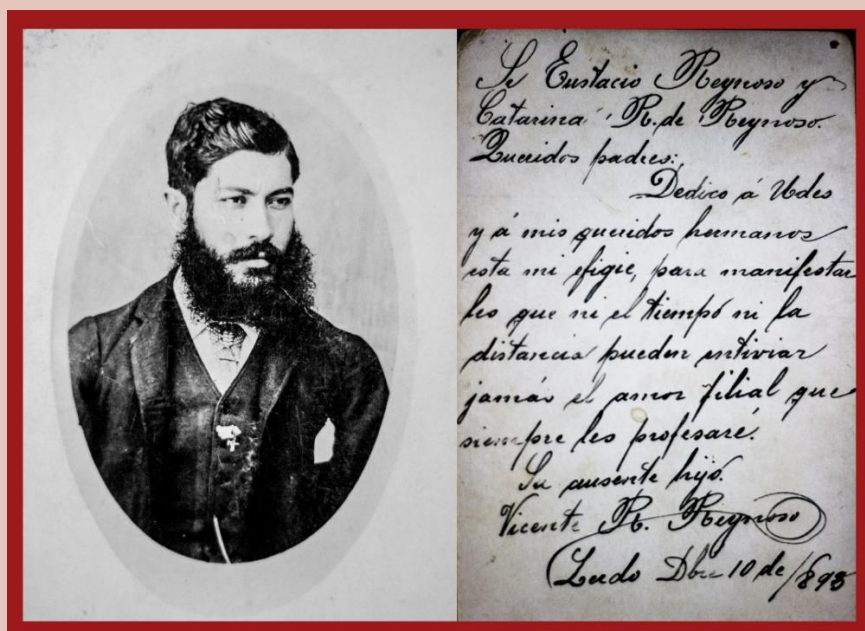 Sr Eustacio Reynoso y
Catarina R. de Reynoso.
Queridos padres:
Dedico á Udes
y á mis queridos hermanos
esta mi efigie, para manifestar
les que ni el tiempo ni la
distancia pueden entiviar
jamás el amor filial que
siempre les profesaré.
Su ausente hijo.
Vicente R. Reynoso
Lerdo Dbre 10 de 1893